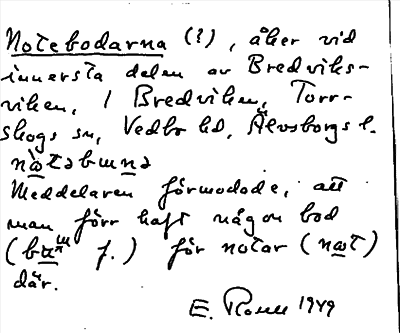 Notebodarna (?), åker vid
innersta delen av Bredviks-
viken, / Bredviken, Torr-
skogs sn, Vedbo hd, Älvsborgs l.
Meddelaren förmodade, att
man förr haft någon bod
f.) för notar
där.
E. 1949